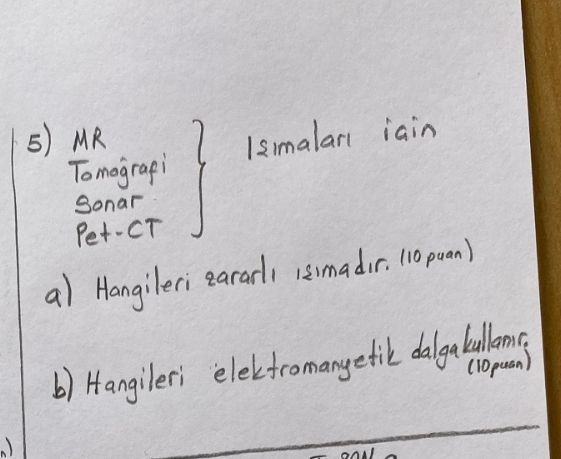 5) MR
Tomoğrafi
Sonar
Pet-CT
} Isımaları için
a) Hangileri zararlı ısımadır. (10 puan)
b) Hangileri elektromanyetik dalga kullanır.
(10 puan)